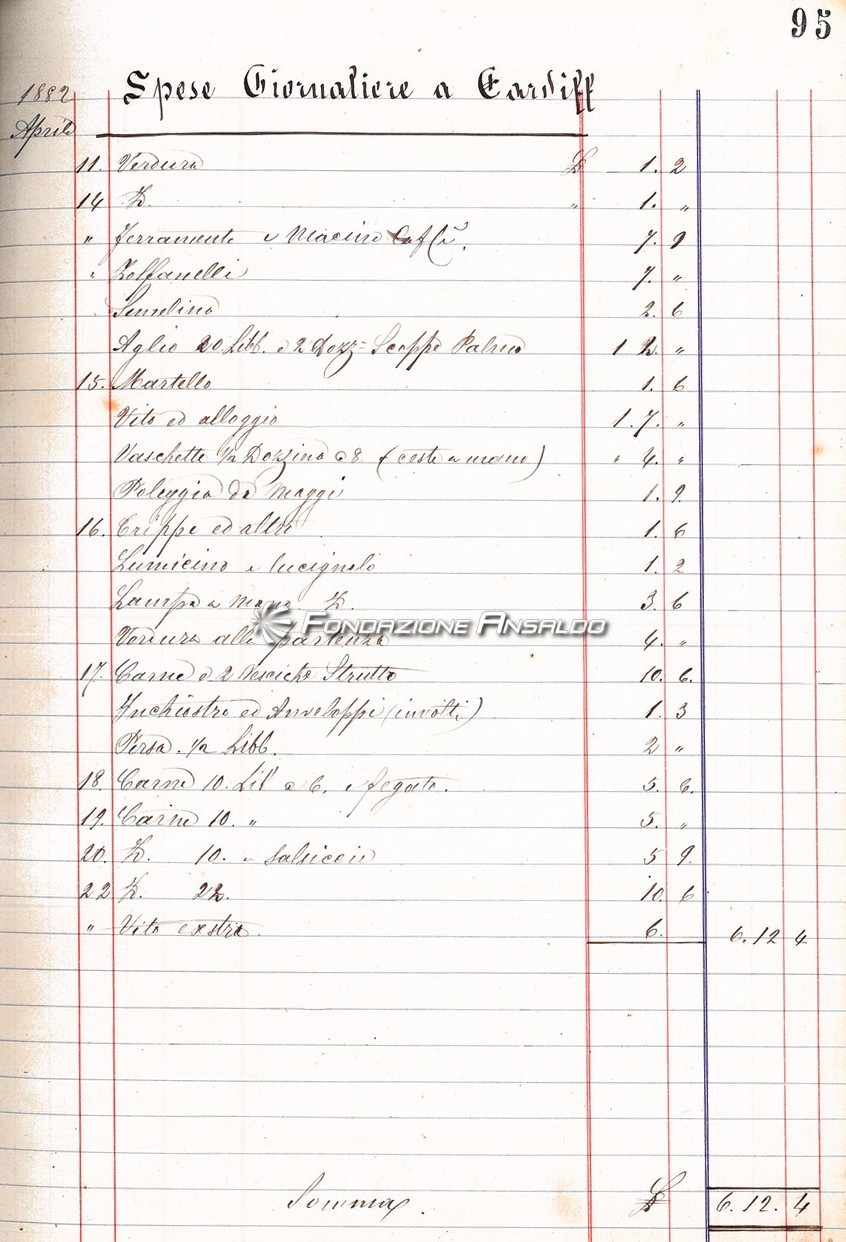 95
1882 Spese Giornaliere a Cardiff
Aprile
11. Verdura £ - 1. 2
14 D. " 1. "
" Ferramento e Macino Caffè. 7. 9
" Zolfanelli 7. "
Semelino 2. 6
Aglio 20 Libb. e 2 Dozz= Scoppe Palme 1 2. "
15. Martello 1. 6
Vito ed alloggio 1. 7. "
Vaschette 1/2 Dozzina a 8. (ceste a mano) " 4. "
Poleggia da Maggi 1. 9.
16. Trippe ed altri 1. 6
Lumicino e lucignolo 1. 2
Lampa a mano D. 3. 6
FONDAZIONE ANSALDO
Verdura alla partenza 4. "
17. Carne e 2 Vesciche Strutto 10. 6.
Inchiostro ed Anveloppi (involti) 1. 3
Persa. 1/2 Libb. 2 "
18. Carne 10. Lib a 6. e fegato. 5. 6.
19. Carne 10. " 5. "
20. D. 10. e Salsiccie 5 9.
22 D. 22. 10. 6
" Vito exstra. 6. 6. 12 4
Somma. £ 6. 12. 4